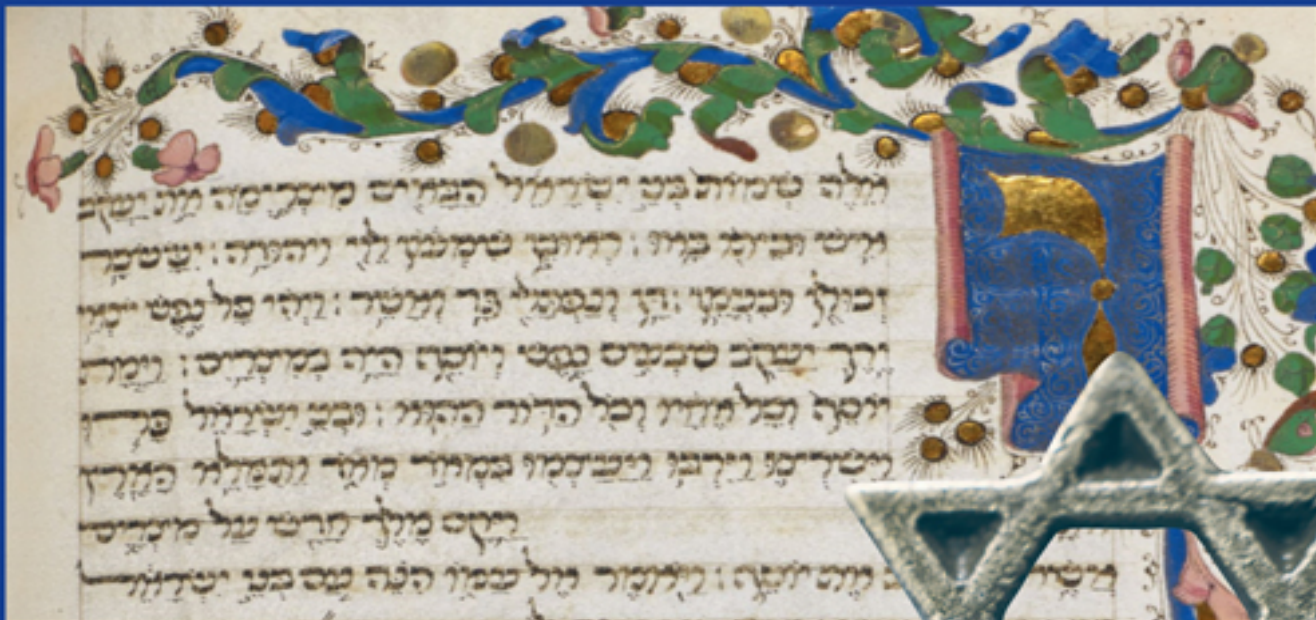 וְ
אֵלֶּה שְׁמוֹת בְּנֵי יִשְׂרָאֵל הַבָּאִים מִצְרָיְמָה אֵת יַעֲקֹב
אִישׁ וּבֵיתוֹ בָּאוּ : רְאוּבֵן שִׁמְעוֹן לֵוִי וִיהוּדָה : יִשָּׂשכָר
זְבוּלֻן וּבִנְיָמִן : דָּן וְנַפְתָּלִי גָּד וְאָשֵׁר : וַיְהִי כָּל נֶפֶשׁ יֹצְאֵי
יֶרֶךְ יַעֲקֹב שִׁבְעִים נָפֶשׁ וְיוֹסֵף הָיָה בְמִצְרָיִם : וַיָּמָת
יוֹסֵף וְכָל אֶחָיו וְכֹל הַדּוֹר הַהוּא : וּבְנֵי יִשְׂרָאֵל פָּרוּ
וַיִּשְׁרְצוּ וַיִּרְבּוּ וַיַּעַצְמוּ בִּמְאֹד מְאֹד וַתִּמָּלֵא הָאָרֶץ
וַיָּקָם מֶלֶךְ חָדָשׁ עַל מִצְרָיִם
אֲשֶׁר אֶת יוֹסֵף : וַיֹּאמֶר אֶל עַמּוֹ הִנֵּה עַם בְּנֵי יִשְׂרָאֵל